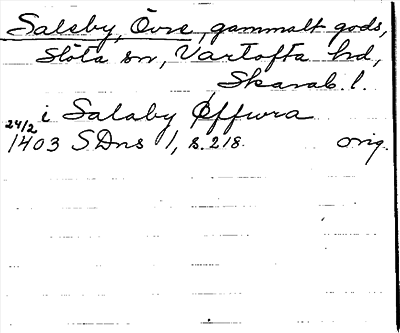 Salsby, Övre, gammalt gods,
Slöta sn, Vartofta hd,
Skarab. l.
i Salaby Øffwra
24/2
1403 SDns 1, s. 218. orig.